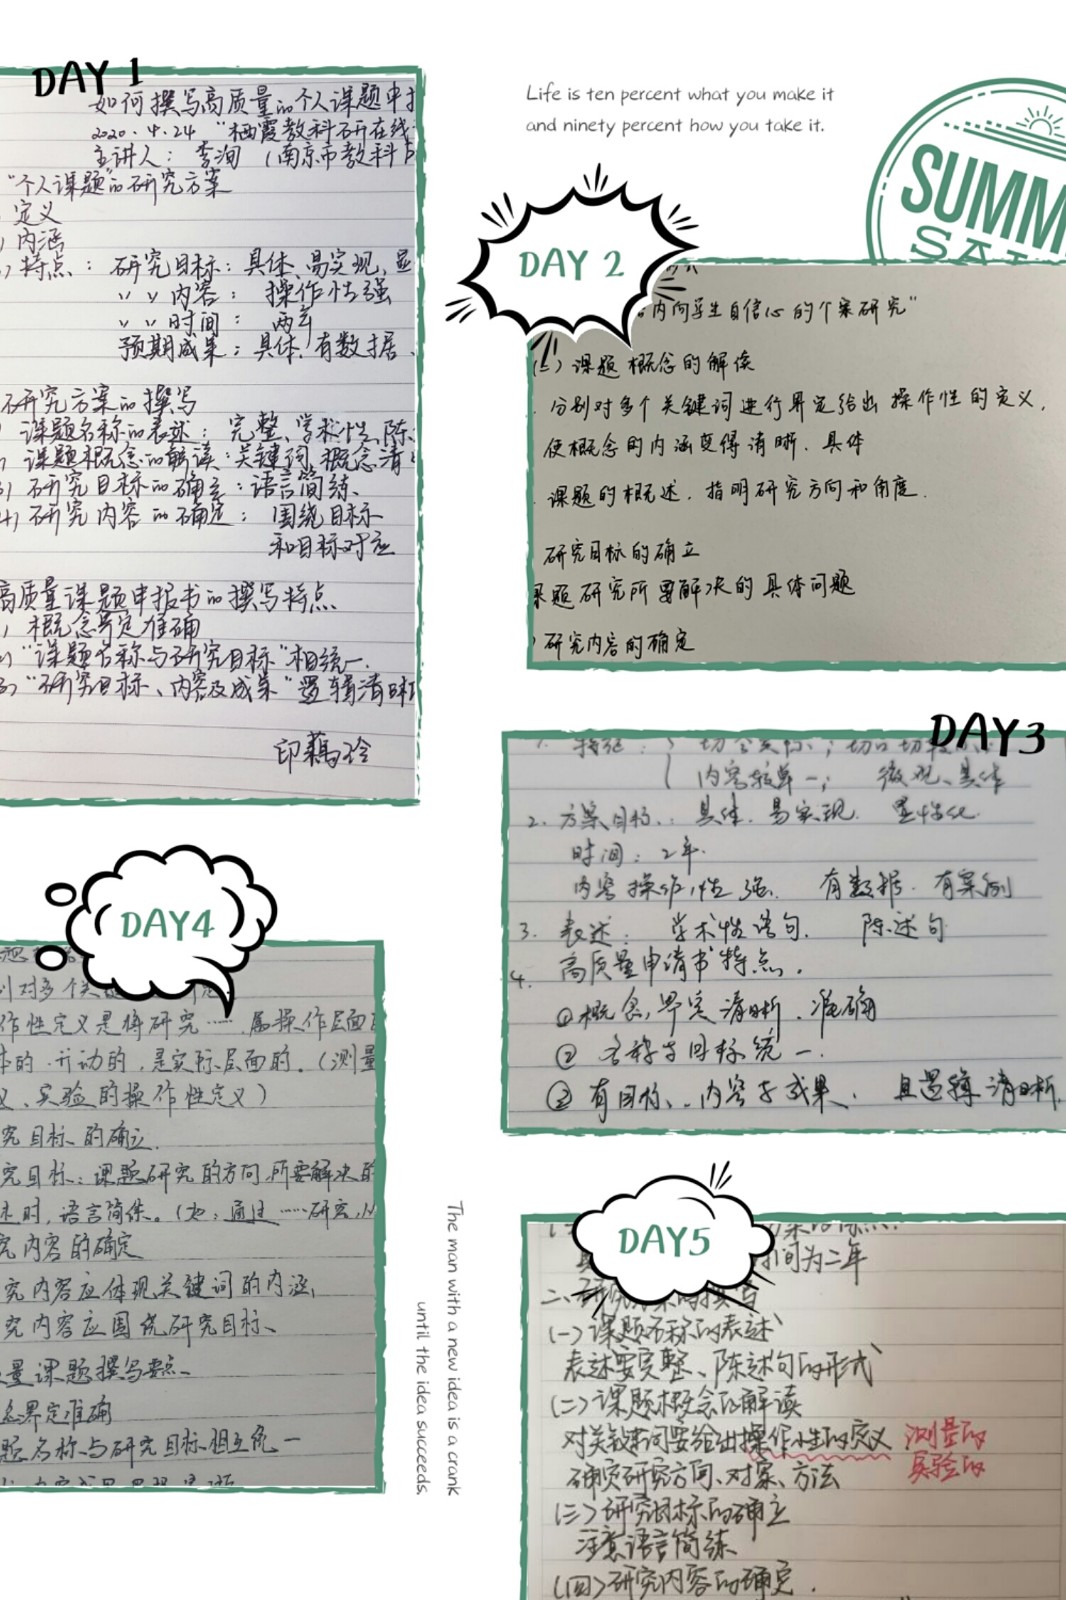 DAY 1
如何撰写高质量的个人课题申报
2020.4.24 “栖霞教科研在线
主讲人： 李洵 （南京市教科所
“个人课题”的研究方案
定义
内涵
特点： 研究目标：具体、易实现、显
〃 〃 内容： 操作性强
〃 〃 时间： 两年
预期成果：具体、有数据、
研究方案的撰写
课题名称的表述：完整、学术性、陈
课题概念的解读：关键词、概念清
3) 研究目标的确立：语言简练、
(4) 研究内容的确定： 围绕目标
和目标对应
高质量课题申报书的撰写特点
概念界定准确
“课题名称与研究目标”相统一.
“研究目标、内容及成果”逻辑清晰
Life is ten percent what you make it
and ninety percent how you take it.
SUMM
SA
DAY 2
内向学生自信心的个案研究”
(二) 课题概念的解读
分别对多个关键词进行界定给出操作性的定义，
使概念的内涵变得清晰、具体
课题的概述，指明研究方向和角度.
研究目标的确立
课题研究所要解决的具体问题
) 研究内容的确定
DAY3
内容较单一； 微观、具体
2. 方案目标： 具体、易实现、显性化
时间：2年.
内容操作性强、 有数据、有案例
3. 表述： 学术性语句、 陈述句
4. 高质量申请书特点.
① 概念界定清晰、准确
② 名称与目标统一.
③ 有目标、内容与成果、 且逻辑清晰
DAY4
对多个关
作性定义是将研究……属操作层面
体的、行动的，是实际层面的。（测量
义、实验的操作性定义）
究目标的确立.
究目标：课题研究的方向、所要解决的
述时，语言简练。（如：通过……研究，
究内容的确定
究内容应体现关键词的内涵，
究内容应围绕研究目标、
量课题撰写要点、
念界定准确
题名称与研究目标相互统一
The man with a new idea is a crank
until the idea succeeds.
DAY5
时间为二年
二、研究方案的撰写
(一) 课题名称的表述
表述要完整、陈述句的形式
(二) 课题概念的解读
对关键词要给出操作性的定义 测量的
实验的
确定研究方向、对象、方法
(三) 研究目标的确立
注意语言简练
(四) 研究内容的确定.